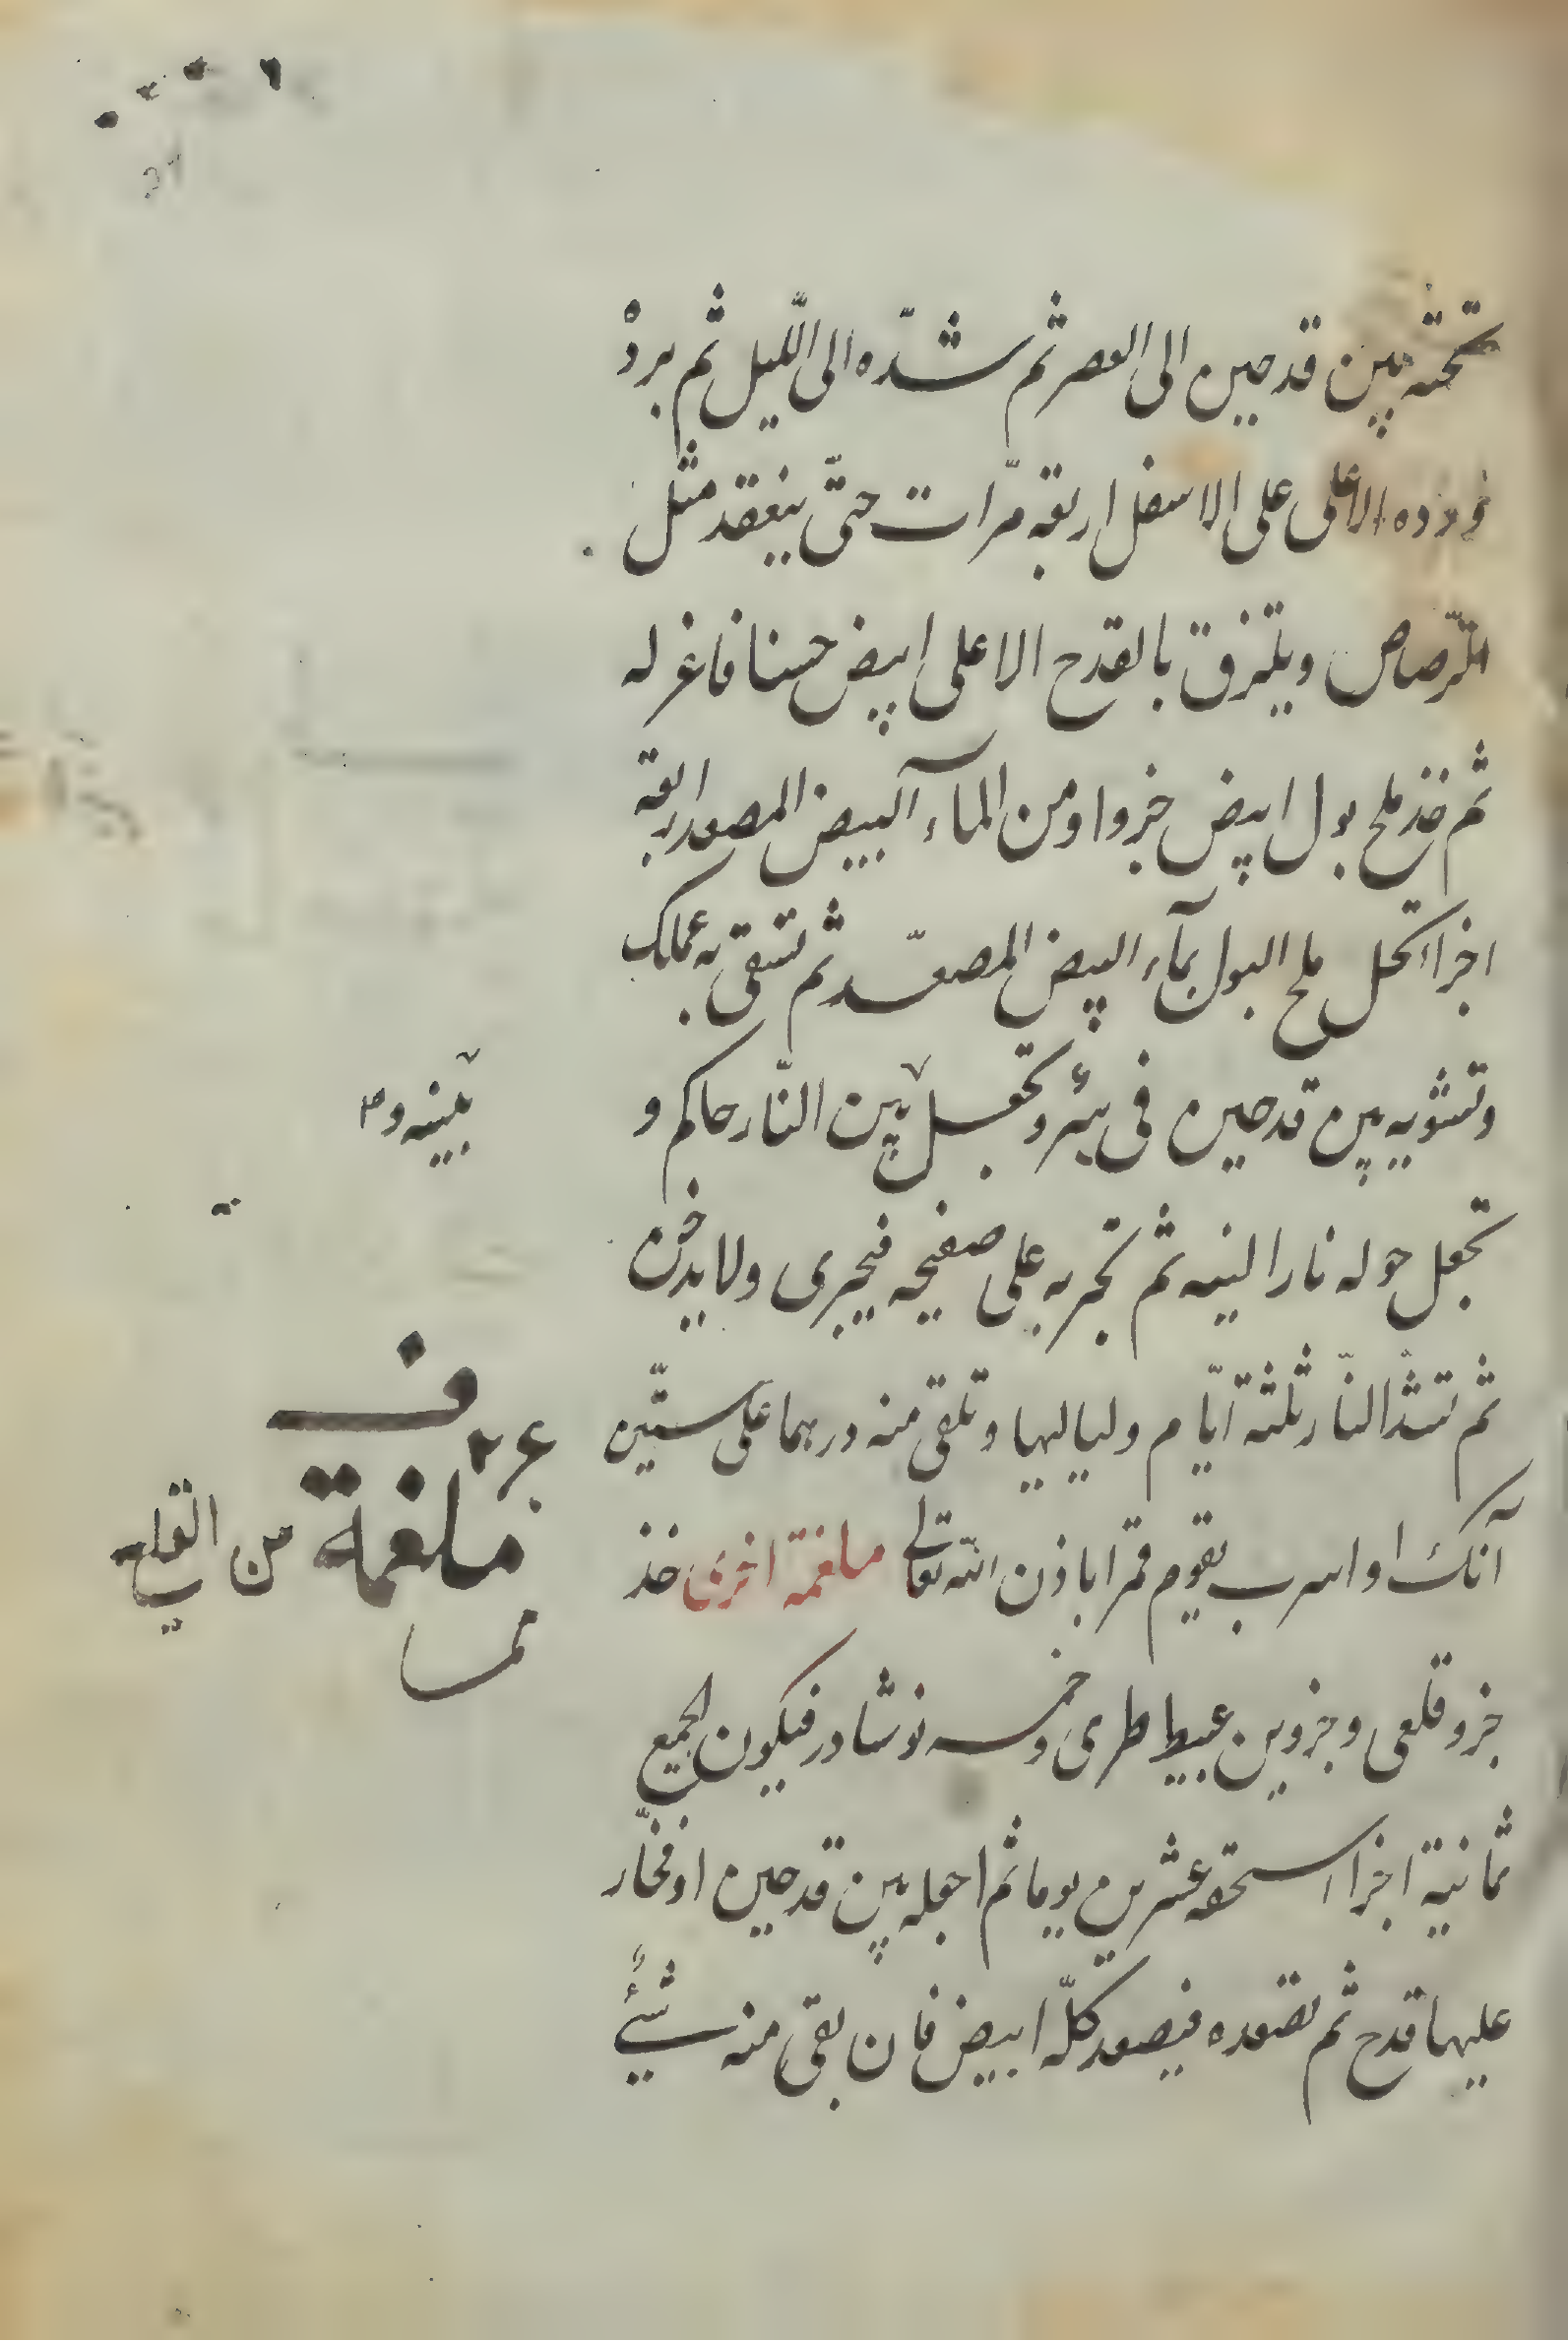 تحته بين قدحين الى العصر ثم شدّه الى الليل ثم بردْ
ورده الاعلى على الاسفل اربعة مرّات حتّى ينعقد مثل
الرّصاص ويلتزق بالقدح الاعلى ابيض حسنا فاعزله
ثم خذ ملح بول ابيض جزوا ومن الماء البيض المصعد اربعة
اجزاء تحل ملح البول بماء البيض المصعّد ثم تسقى به عملك
وتشويه بين قدحين فى بئر وتجعل بين النّار حاكم و
تجعل حوله نارا لينه ثم تجربه على صفيحه فيجرى ولا يدخن
ثم تشدّ النّار ثلثة ايّام ولياليها وتلقى منه درهما على ستّين
آنك او اسرب يقوم قمرا باذن الله تعالى ملغمة اخرى خذ
جزو قلعى وجزوين عبيط طرى وخمسه نوشادر فيكون الجميع
ثمانية اجزاء اسحقه عشرين يوما ثم اجعله بين قدحين او فخّار
عليها قدح ثم تصعده فيصعد كلّه ابيض فان بقى منه شيئٌ
بينه و
ف
ملغمة من القلعي